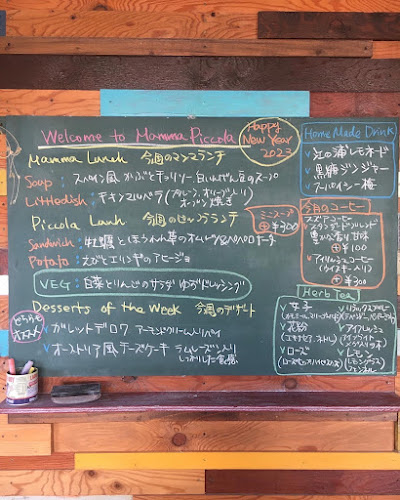 Welcome to Mamma Piccola
Happy
New Year
2023
Mamma Lunch 今週のマンマランチ
Soup : スペイン風 かぶとチョリソー 白いんげん豆のスープ
Littledish : チキンマルベラ (プルーン、オリーブ入り
オーブン焼き)
Piccola Lunch 今週のピッコラランチ
Sandwich : 牡蠣とほうれん草のオムレツ&ペペロソース
Potato : えびとエリンギのアヒージョ
VEG : 白菜とりんごのサラダ ゆずドレッシング
ミニスープ
⊕¥300
Desserts of the Week 今週のデザート
どちらも
オススメ!
✓ ガレットデロワ アーモンドクリーム入りパイ
✓ オーストリア風チーズケーキ ラムレーズン入り
しっかりした食感
Home Made Drink
✓ 江の浦レモネード
✓ 黒糖ジンジャー
✓ スパイシー梅
今月のコーヒー
スタンダードブレンド
⊕¥100
✓ アイリッシュコーヒー
(ウイスキー入り)
⊕¥300
Herb Tea
✓ 花粉
(エキナセア、ネトル)
✓ ローズ
✓ リラックスブルー
✓ アイフレッシュ
アイブライト
✓ レモン
レモングラス
フェンネル